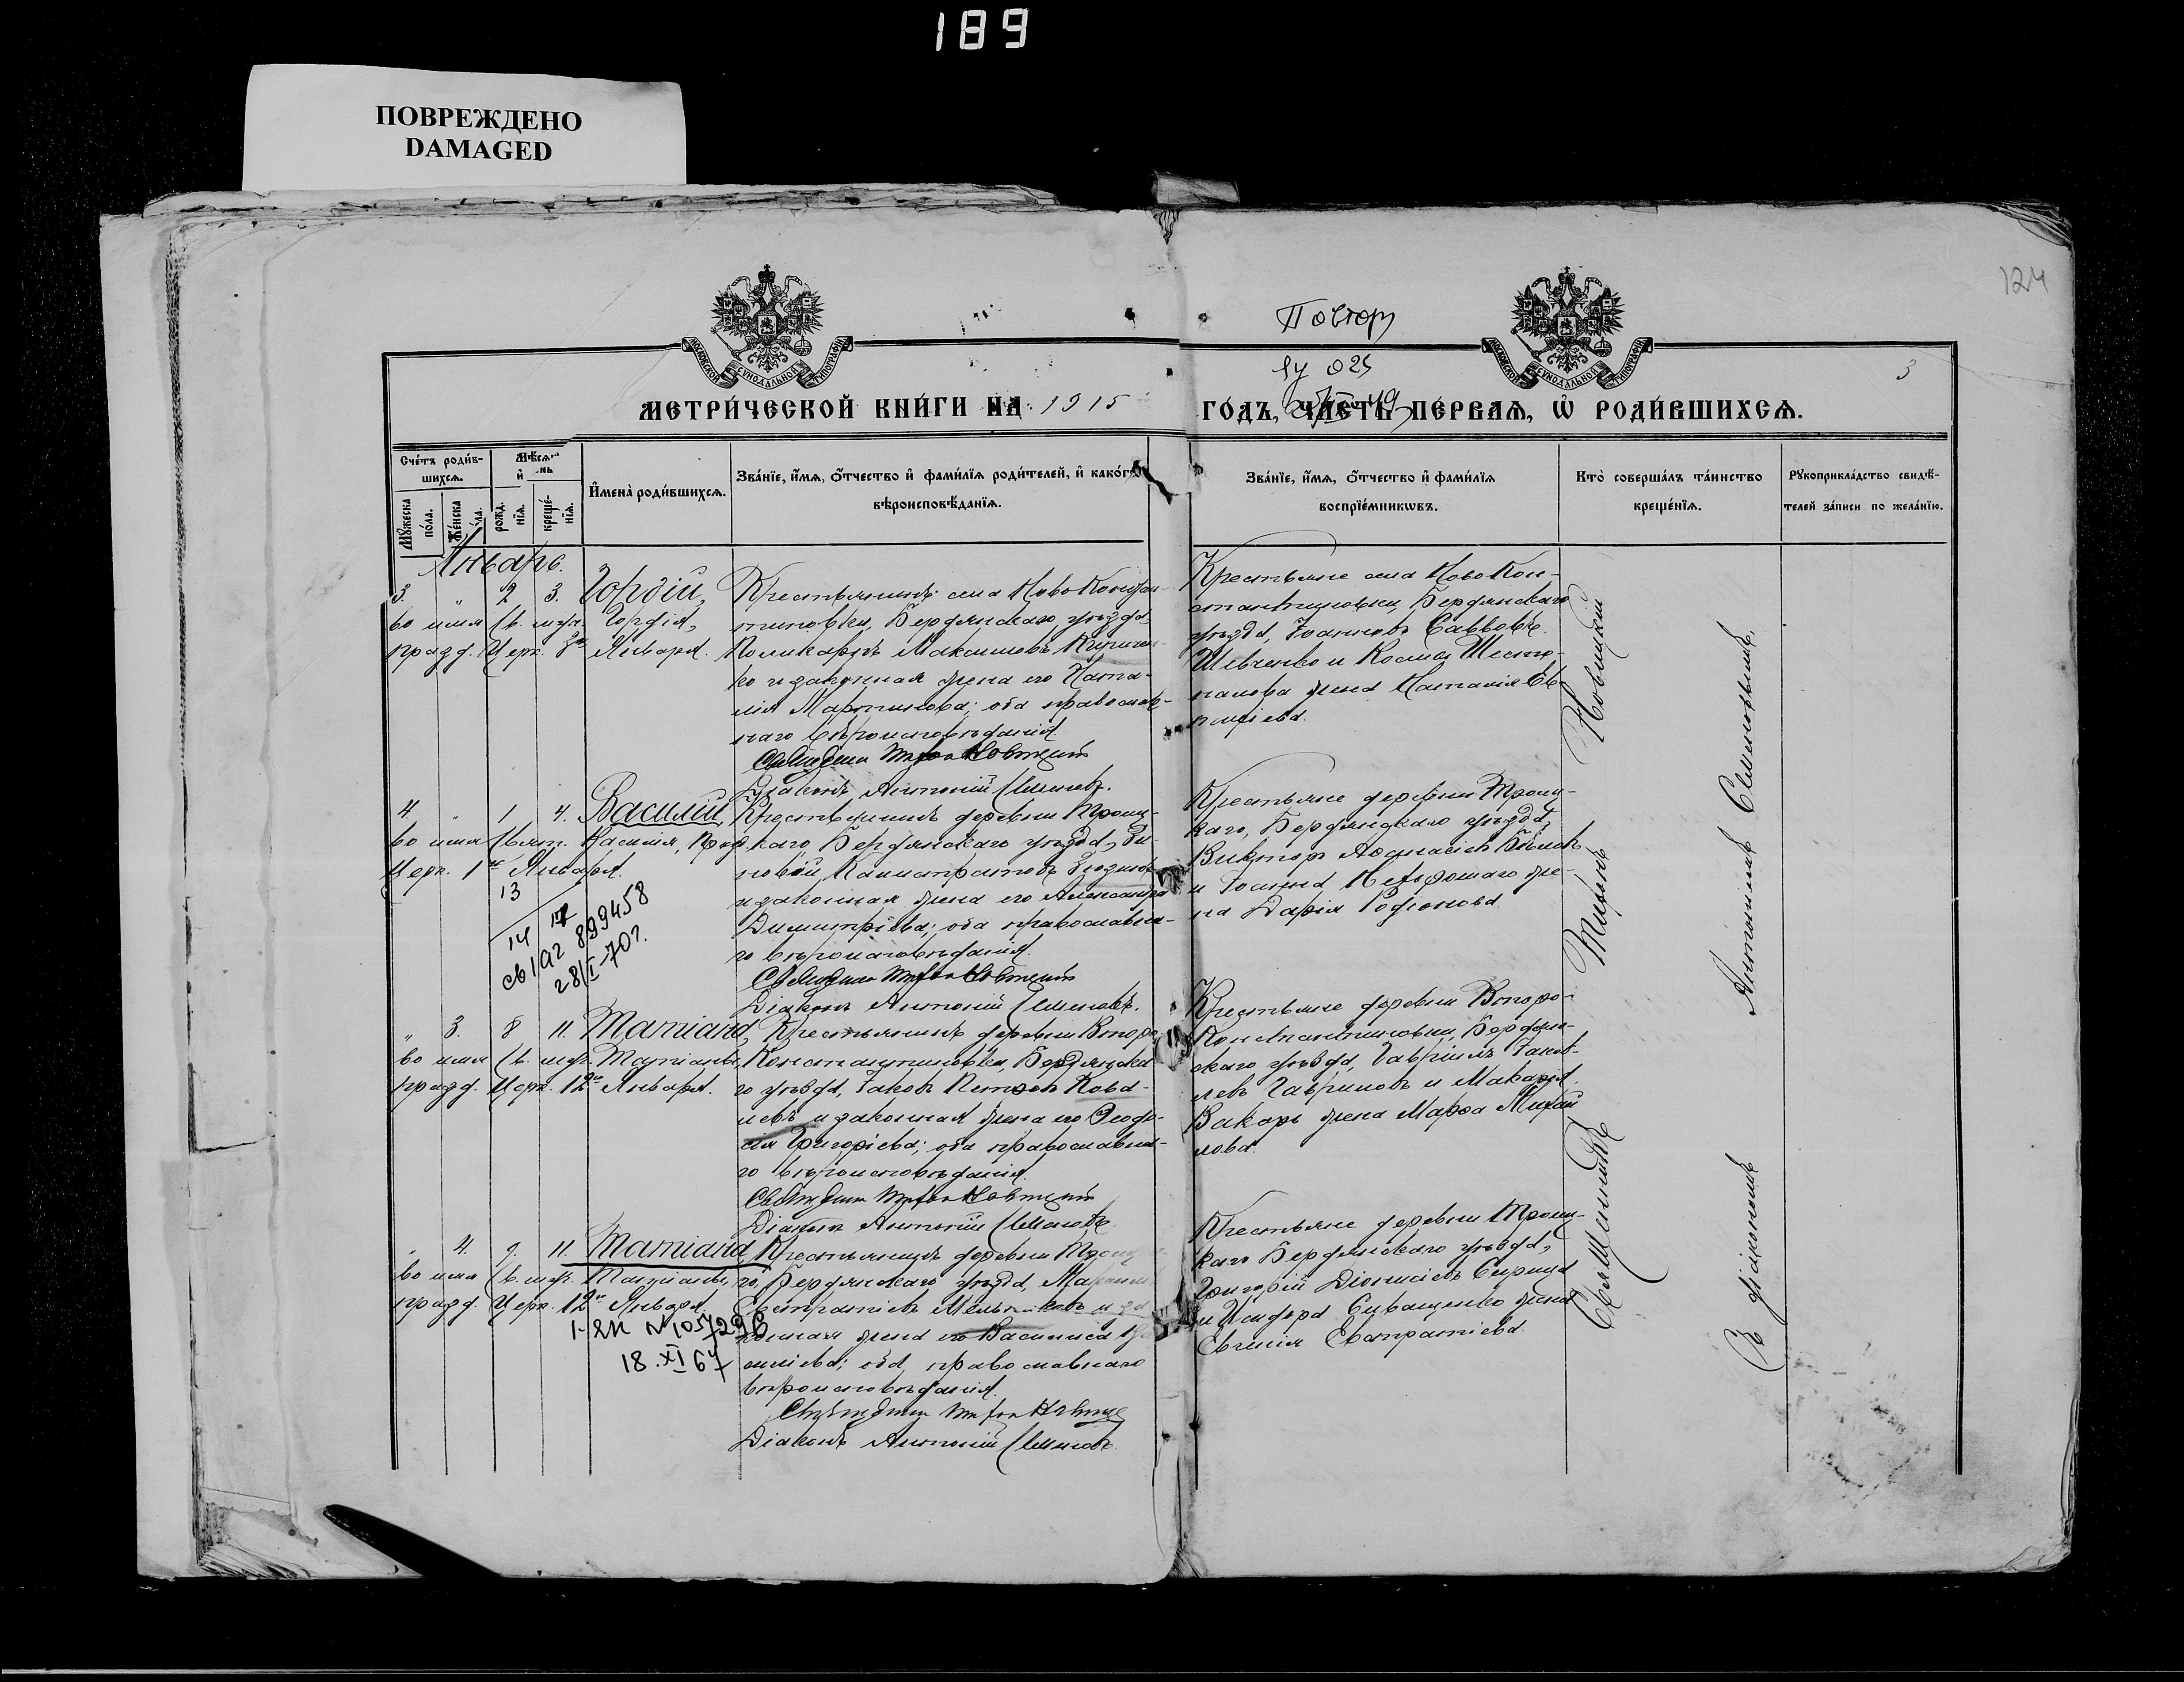 189
ПОВРЕЖДЕНО
DAMAGED
124
Повтор
3
МЕТРИ́ЧЕСКОЙ КНИ́ГИ НА 1915
ГО́ДЪ, ЧА́СТЬ ПЕ́РВАЯ, Ѡ РОДИ́ВШИХСЯ.
Сче́тъ роди́в-
шихся.
Мужеска по́ла.
Же́нска
рожд. нїя.
креще́- нїя.
И҆мена̀ роди́вшихся.
Зва́нїе, и҆́мя, ѻ҆́тчество и҆ фами́лїя роди́телей, и҆ како́гѡ
вѣроисповѣ́данїя.
Зва́нїе, и҆́мя, ѻ҆́тчество и҆ фами́лїя
воспрїе́мниковъ.
Кто̀ соверша́лъ та́инство
креще́нїя.
Рукоприкла́дство свидѣ́-
телей за́писи по жела́нїю.
Январь.
3. " 2 3. Гордій,
во имя Св. муч. Гордія,
празд. Церк. 3го Января.
Крестьянинъ села НовоКонстан-
тиновки, Бердянскаго уѣзда,
Поликарпъ Максимовъ
ко и законная жена его Ната-
лія Мартинова; оба православ-
наго вѣроисповѣданія.
Діаконъ Антоній Семеновъ.
Крестьяне села НовоКон-
стантиновки, Бердянскаго
уѣзда, Іоанновъ Савовъ
Шевченко и Космы Шесто-
палова жена Наталія Ев-
4 " 1 4. Василій,
во имя Свят. Василія, празд.
Церк. 1го Января.
13
14 17
899458
28/I-70г.
Крестьянинъ деревни Троиц-
каго, Бердянскаго уѣзда, Зи-
новій Каллистратовъ
и законная жена его Александра
Димитріева; оба православна-
го вѣроисповѣданія.
Діаконъ Антоній Семеновъ.
Крестьяне деревни Троиц-
каго, Бердянскаго уѣзда,
Викторъ Аѳанасіевъ Бѣликъ
и Іоанна жe-
на Дарія Родіонова.
" 3. 8 11. Татіана,
во имя Св. муч. Татіаны,
празд. Церк. 12го Января.
Крестьянинъ деревни Второ-
Константиновки, Бердянска-
го уѣзда, Іаковъ Петровъ Кова-
левъ и законная жена его Ѳеодо-
сія Григоріева; оба православна-
го вѣроисповѣданія.
Діаконъ Антоній Семеновъ
Крестьяне деревни Второ-
Константиновки, Бердян-
скаго уѣзда, Гавріилъ Іаков-
левъ Гавриловъ и Макарія
Вакаръ жена Марѳа Михаи
лова.
" 4. 9. 11. Татіана
во имя Св. муч. Татіаны,
празд. Церк. 12го Января.
№ 1057298
18.XI 67
Крестьянинъ деревни Троиц
го, Бердянскаго уѣзда,
Евстратіевъ Мельниковъ и за
конная жена его Василиса
оба православнаго
вѣроисповѣданія.
Діаконъ Антоній Семеновъ.
Крестьяне деревни Троиц-
каго Бердянскаго уѣзда,
Григорій Діонисіевъ Сирица
и Исидора Сиващенко жена
Евгенія Евстратіева.
Священникъ Тифонъ Новицкій
Съ діакономъ Антоніемъ Семеновымъ.